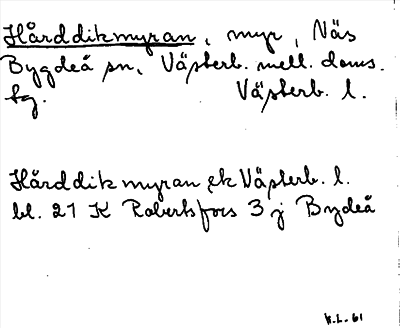 Hårddikmyran, myr, Näs
Bygdeå sn, Västerb. mell. doms.
sg. Västerb. l.
Hårddikmyran ek Västerb. l.
bl. 21 K Robertsfors 3 j Bygdeå
K.L. 61